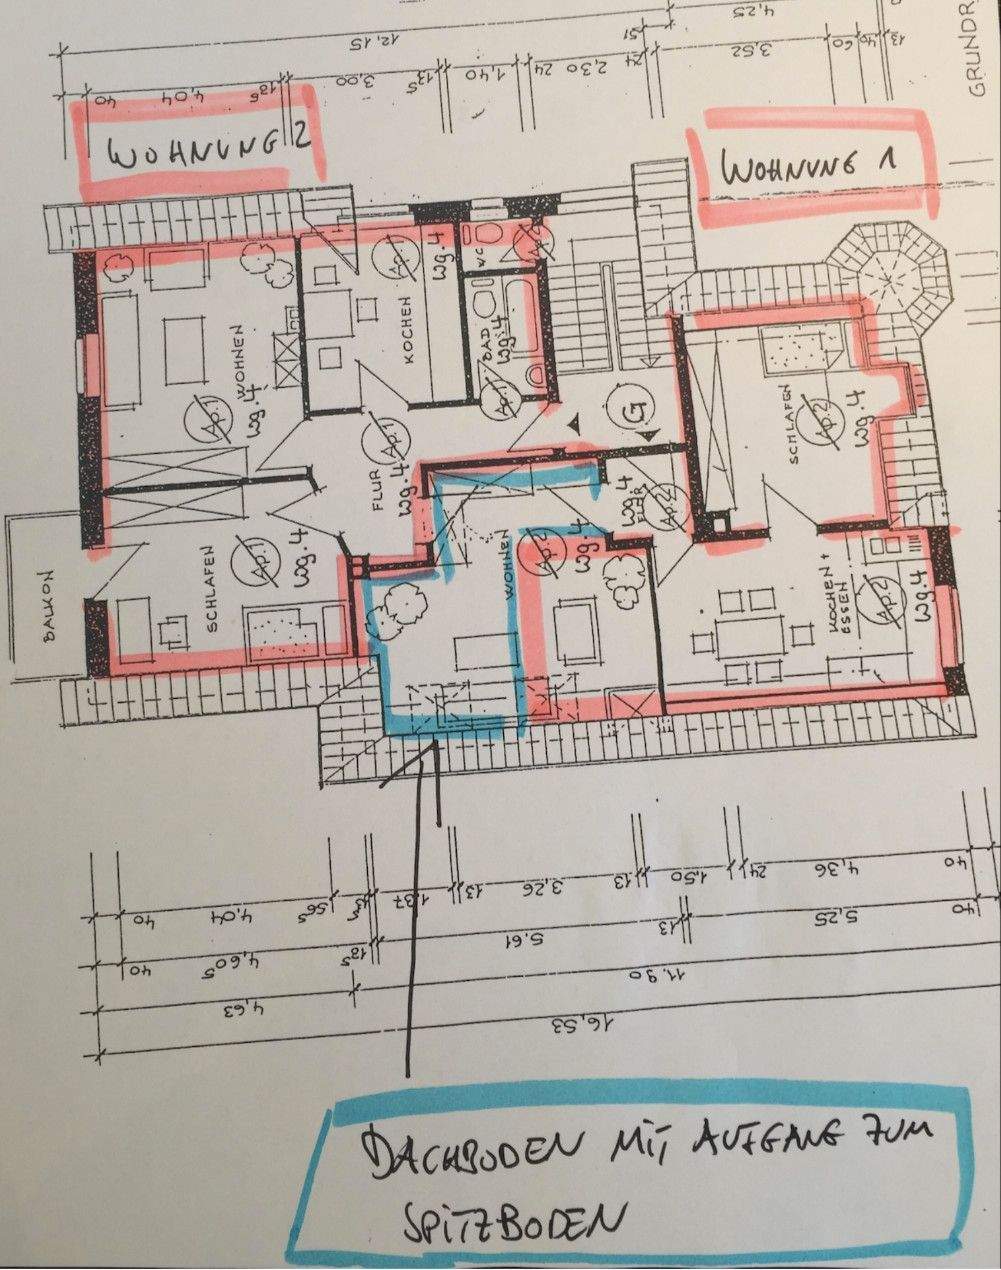 4,25
GRUNDR
12,15
51
40
4,04
13⁵
3,00
13⁵
1,40
24
2,30
24
3,52
60
40
13
WOHNUNG 2
WOHNUNG 1
WC
Ap.1
wg.4
KOCHEN
BAD
wg.4
Ap.1
WOHNEN
Ap.1
wg.4
G
SCHLAFEN
Ap.2
wg.4
FLUR
Ap.1
wg.4
FLUR
wg.4
Ap.2
BALKON
SCHLAFEN
Ap.1
wg.4
WOHNEN
Ap.2
wg.4
KOCHEN +
ESSEN
Ap.2
wg.4
40
4,04
56⁵
1,37
13
3,26
13
1,50
24
4,36
40
40
4,60⁵
18⁵
5,61
13
5,25
40
4,63
11,90
16,53
DACHBODEN MIT AUFGANG ZUM
SPITZBODEN